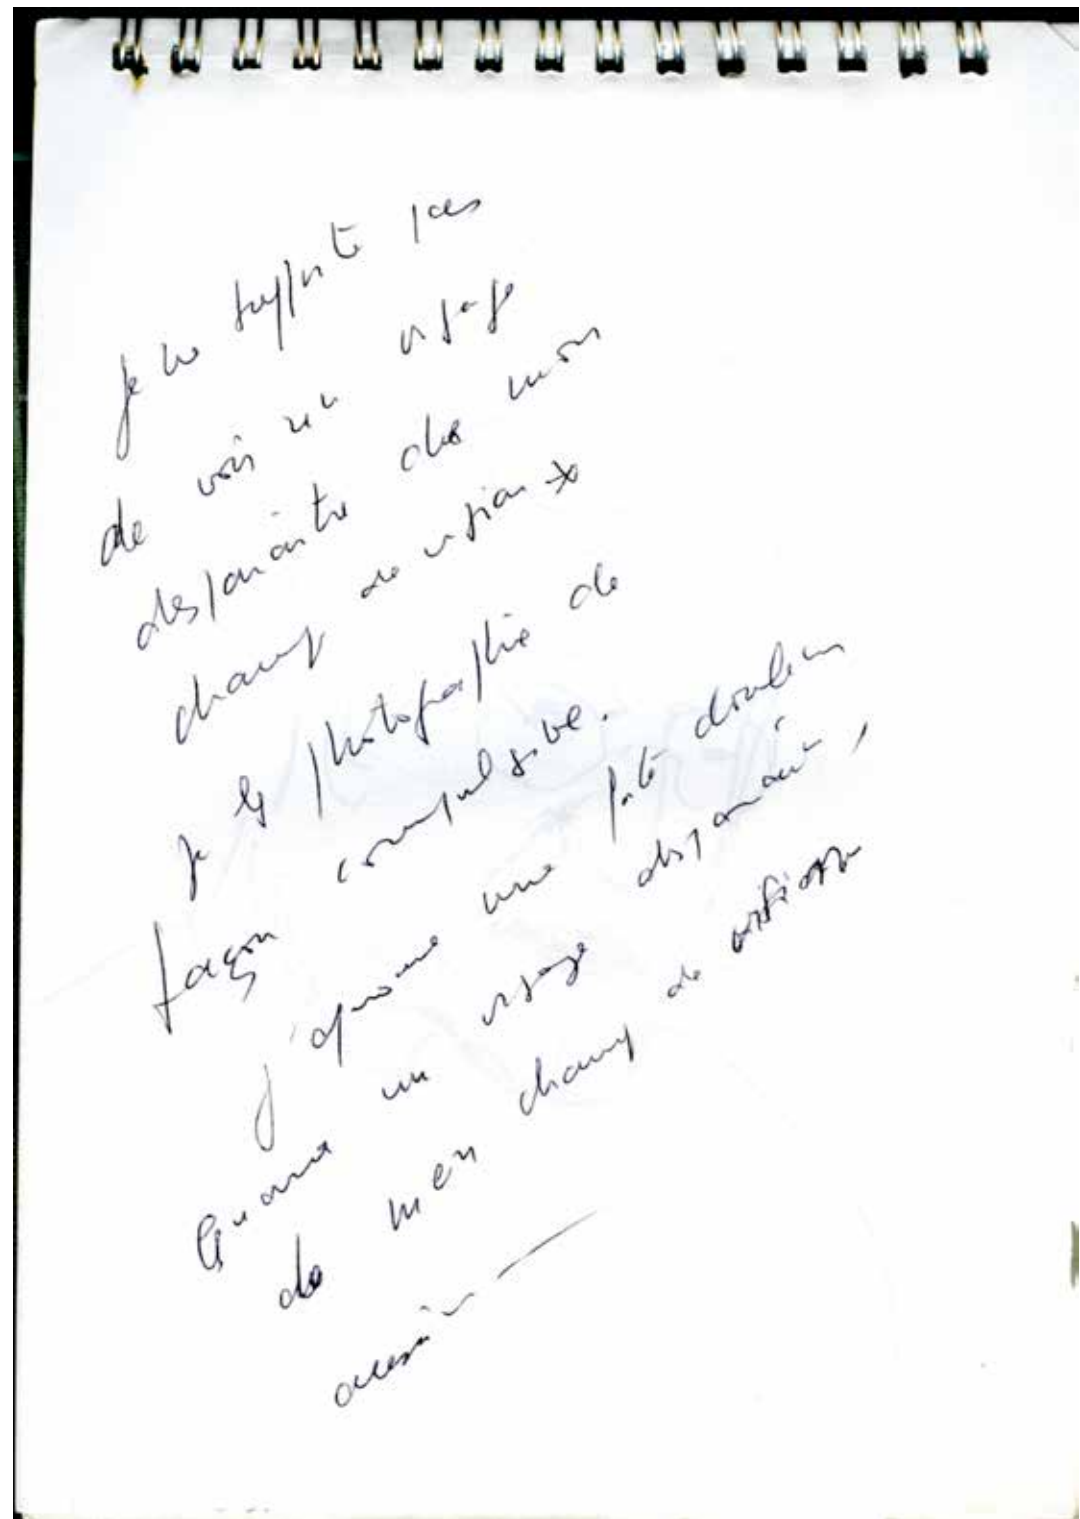 je ne supporte pas
de voir un visage
disparaître de mon
champ de vision
je les photographie de
façon compulsive.
j'éprouve une forte douleur
quand un visage disparaît,
de mon champ de vision